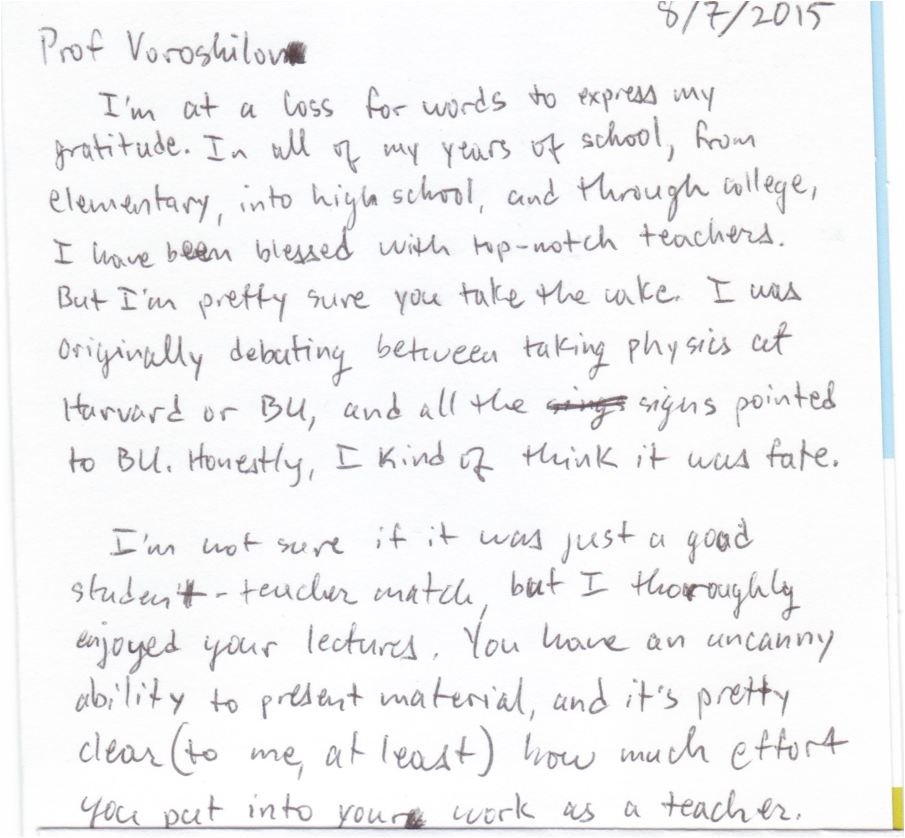 8/7/2015
Prof Voroshilov
I'm at a loss for words to express my
gratitude. In all of my years of school, from
elementary, into high school, and through college,
I have been blessed with top-notch teachers.
But I'm pretty sure you take the cake. I was
originally debating between taking physics at
Harvard or BU, and all the sings signs pointed
to BU. Honestly, I kind of think it was fate.
I'm not sure if it was just a good
student-teacher match, but I thoroughly
enjoyed your lectures. You have an uncanny
ability to present material, and it's pretty
clear (to me, at least) how much effort
you put into your work as a teacher.